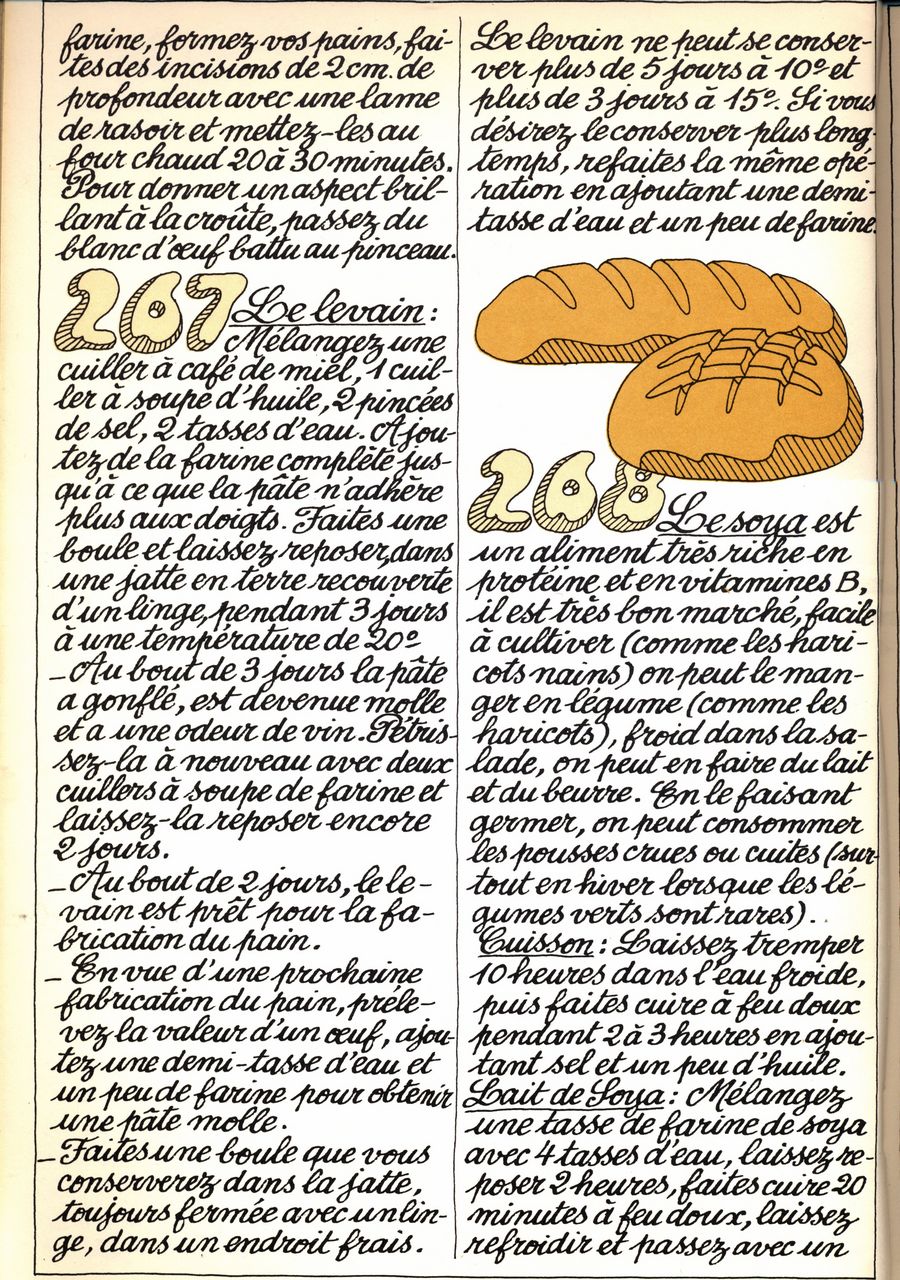 farine, formez vos pains, fai-
tes des incisions de 2 cm. de
profondeur avec une lame
de rasoir et mettez-les au
four chaud 20 à 30 minutes.
Pour donner un aspect bril-
lant à la croûte, passez du
blanc d'œuf battu au pinceau.
267 Le levain :
Mélangez une
cuiller à café de miel, 1 cuil-
ler à soupe d'huile, 2 pincées
de sel, 2 tasses d'eau. Ajou-
tez de la farine complète jus-
qu'à ce que la pâte n'adhère
plus aux doigts. Faites une
boule et laissez reposer, dans
une jatte en terre recouverte
d'un linge, pendant 3 jours
à une température de 20º
_ Au bout de 3 jours la pâte
a gonflé, est devenue molle
et a une odeur de vin. Pétris-
sez-la à nouveau avec deux
cuillers à soupe de farine et
laissez-la reposer encore
2 jours.
_ Au bout de 2 jours, le le-
vain est prêt pour la fa-
brication du pain.
_ En vue d'une prochaine
fabrication du pain, préle-
vez la valeur d'un œuf, ajou-
tez une demi-tasse d'eau et
un peu de farine pour obtenir
une pâte molle.
_ Faites une boule que vous
conserverez dans la jatte,
toujours fermée avec un lin-
ge, dans un endroit frais.
Le levain ne peut se conser-
ver plus de 5 jours à 10º et
plus de 3 jours à 15º. Si vous
désirez le conserver plus long-
temps, refaites la même opé-
ration en ajoutant une demi-
tasse d'eau et un peu de farine.
268 Le soya est
un aliment très riche en
protéine et en vitamines B,
il est très bon marché, facile
à cultiver (comme les hari-
cots nains) on peut le man-
ger en légume (comme les
haricots), froid dans la sa-
lade, on peut en faire du lait
et du beurre. En le faisant
germer, on peut consommer
les pousses crues ou cuites (sur-
tout en hiver lorsque les lé-
gumes verts sont rares).
Cuisson : Laissez tremper
10 heures dans l'eau froide,
puis faites cuire à feu doux
pendant 2 à 3 heures en ajou-
tant sel et un peu d'huile.
Lait de Soya : Mélangez
une tasse de farine de soya
avec 4 tasses d'eau, laissez re-
poser 2 heures, faites cuire 20
minutes à feu doux, laissez
refroidir et passez avec un